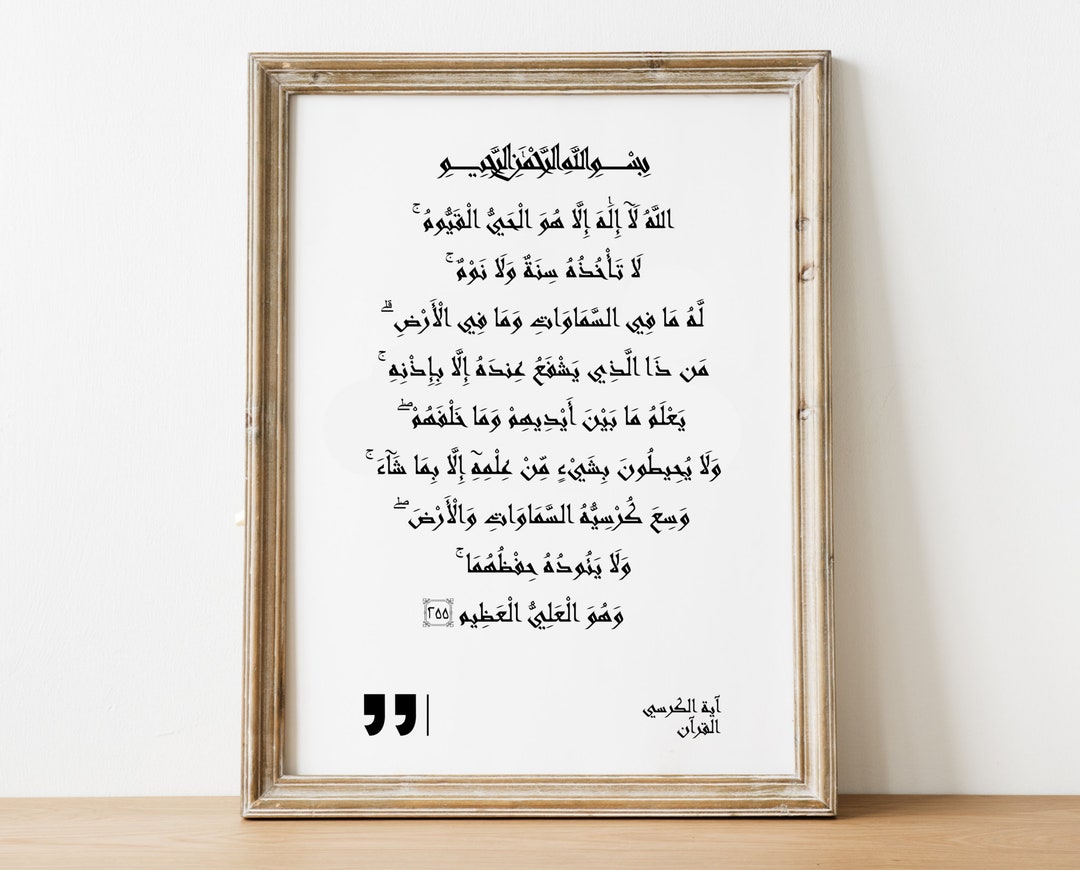 بِسْمِ اللَّهِ الرَّحْمَٰنِ الرَّحِيمِ
اللَّهُ لَآ إِلَٰهَ إِلَّا هُوَ الْحَيُّ الْقَيُّومُ ۚ
لَا تَأْخُذُهُ سِنَةٌ وَلَا نَوْمٌ ۚ
لَّهُ مَا فِي السَّمَاوَاتِ وَمَا فِي الْأَرْضِ ۗ
مَن ذَا الَّذِي يَشْفَعُ عِندَهُ إِلَّا بِإِذْنِهِ ۚ
يَعْلَمُ مَا بَيْنَ أَيْدِيهِمْ وَمَا خَلْفَهُمْ ۖ
وَلَا يُحِيطُونَ بِشَيْءٍ مِّنْ عِلْمِهِٓ إِلَّا بِمَا شَآءَ ۚ
وَسِعَ كُرْسِيُّهُ السَّمَاوَاتِ وَالْأَرْضَ ۖ
وَلَا يَئُودُهُ حِفْظُهُمَا ۚ
وَهُوَ الْعَلِيُّ الْعَظِيم ٢٥٥
آية الكرسي
القرآن